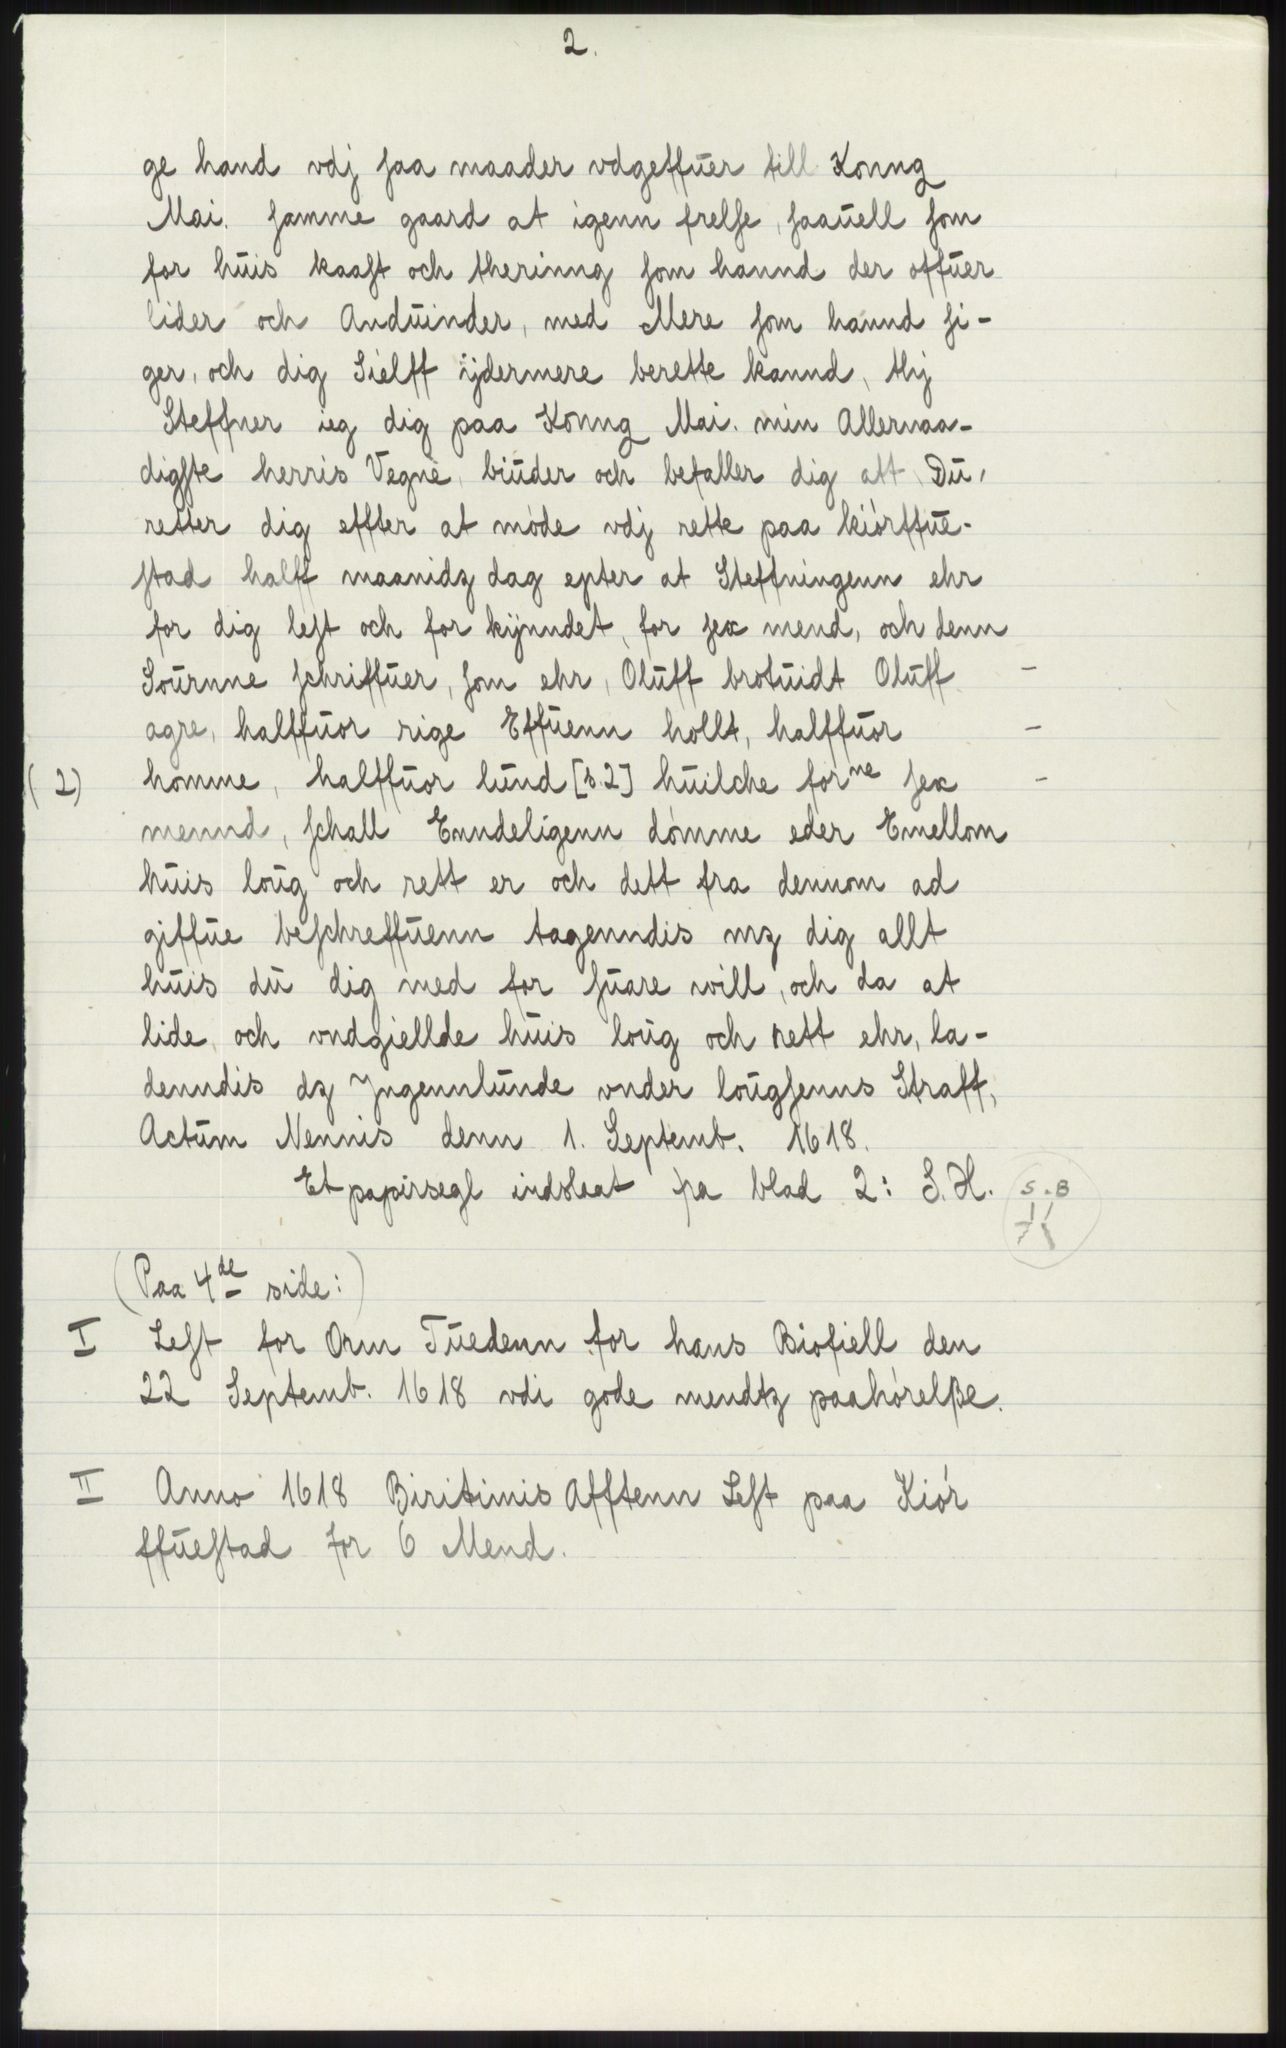 2.
ge hand vdj saa maader vdgeffuer till Konng
Mai. samme gaard at igenn frelse, saauell som
for huis kaast och therinng som hannd der offuer
lider och Anduinder, med Mere som hannd si-
ger, och dig Sielff ijdermere berette kannd, thj
Steffner ieg dig paa Konng Mai. min Allernaa-
digste herris Vegne, biuder och befaller dig att Du,
retter dig effter at móde vdj rette paa kiórffue-
stad halff maanidz dag epter at Steffningenn ehr
for dig lest och for kijnndet, for sex mend, och denn
Sournne schriffuer, som ehr, Oluff brotuidt Oluff -
agre, halffuor rige Effuenn hollt, halffuor -
(2) homme, halffuor lund [s.2] huilche forne sex -
mennd, schall Enndeligenn dómme eder Emellom
huis loug och rett er och dett fra dennom ad
giffue beschreffuenn tagenndis mz dig allt
huis du dig med for suare will, och da at
lide och vndgiellde huis loug och rett ehr, la-
denndis dz Jngennlunde vnder lougsenns Straff,
Actum Nennis denn 1. Septemb. 1618.
Et papirsegl indslaat pa blad 2: S.H. S.B
(Paa 4de side:)
I Lest for Orm Tuedenn for hans Biofiell den
22 Septemb. 1618 vdi gode mendtz paahórelße.
II Anno 1618 Biritimis Afftenn Lest paa Kiór
ffuestad for 6 Mend.